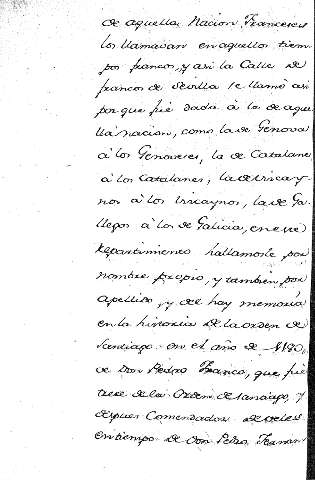 de aquella Nacion, Franceses
los llamavan en aquellos tiem
pos francos, y asi la Calle de
francos de Sevilla se llamó asi
por que fué dada à los de aque
lla nacion, como la de Genova
à los Genoveses, la de Catalanes
à los Catalanes, la de Vizcay
nos à los Vizcaynos, la de Ga
llegos à los de Galicia, en este
Repartimiento hallamosle por
nombre propio, y tambien por
apellido, y de hay memoria
en la historia de la orden de
Santiago en el año de 1180,
de Don Pedro Franco, que fué
trece de la Orden de Santiago, y
despues Comendador de Veles
en tiempo de Don Pedro Fernan